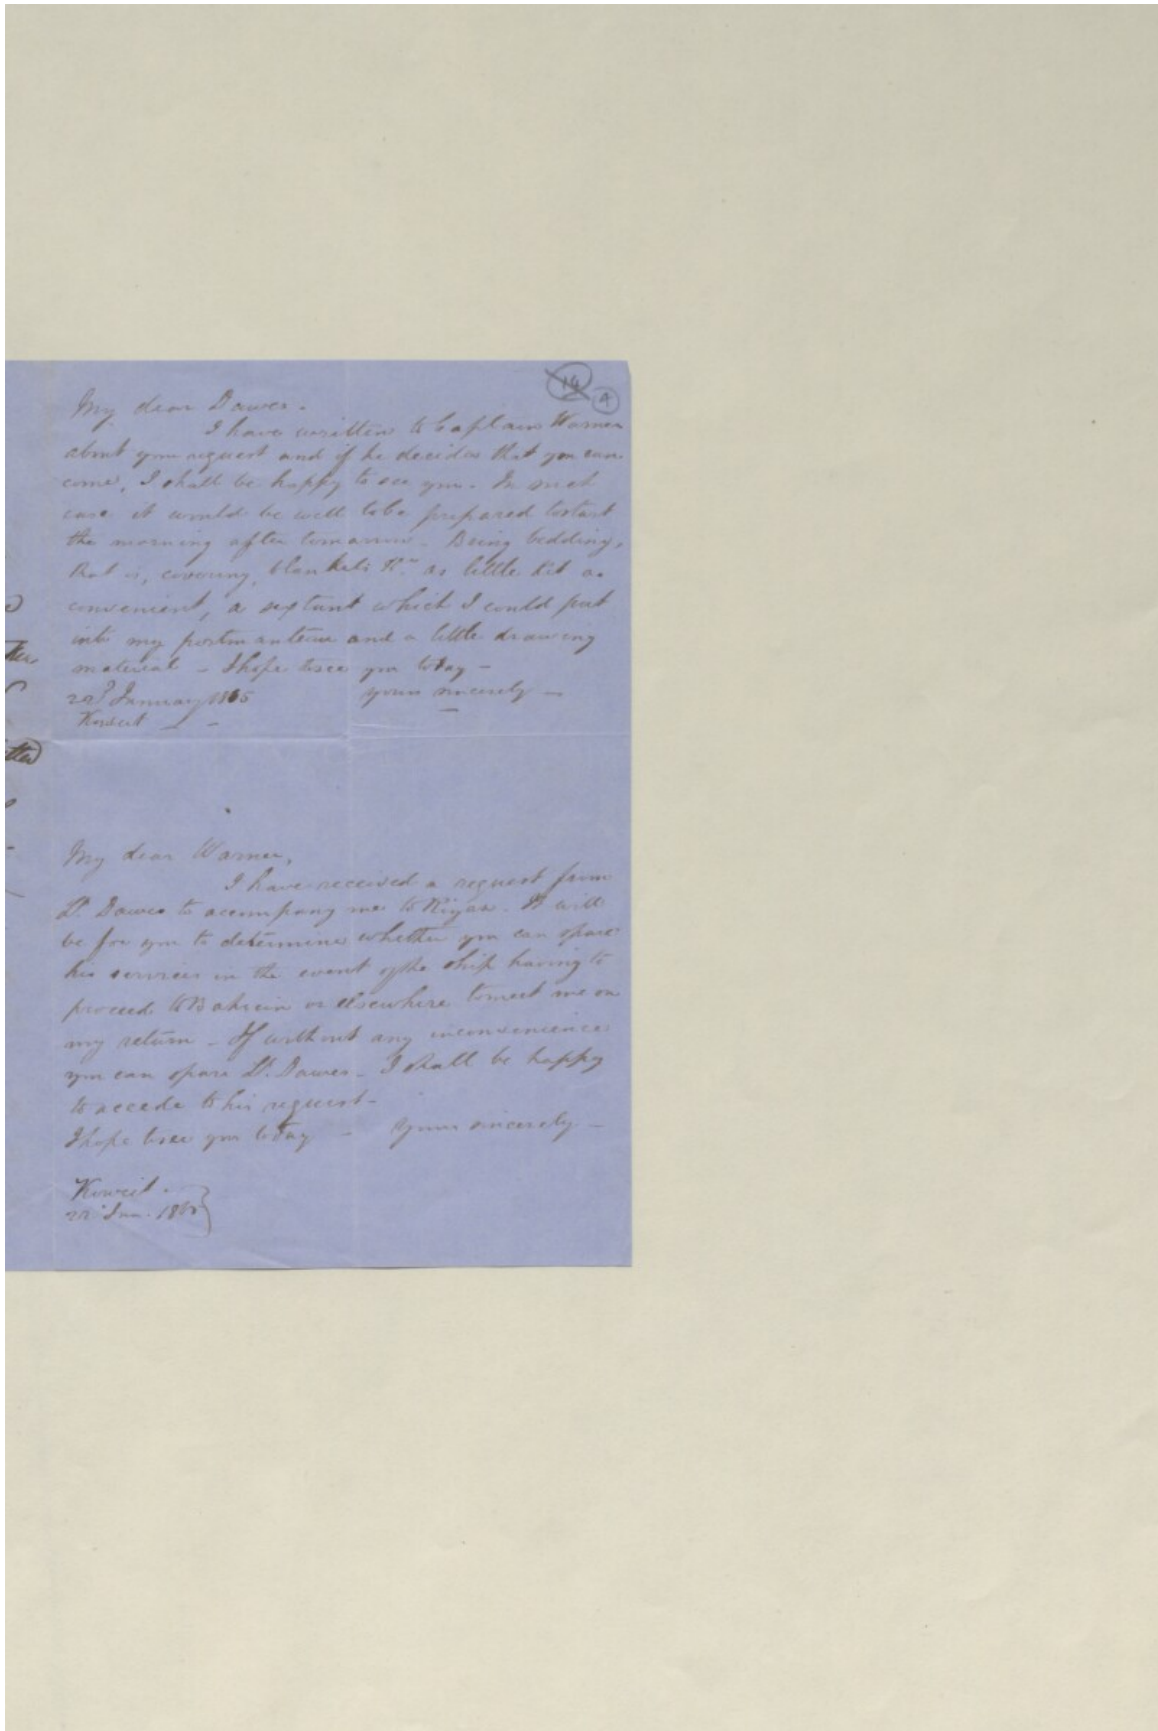 14
9
My dear Dawes.
I have written to Captain Warner
about your request and if he decides that you can
come, I shall be happy to see you. In such
case it would be well to be prepared to start
the morning after tomorrow. Bring bedding,
that is, covering, blankets &c. as little kit as
convenient, a sextant which I could put
into my portmanteau and a little drawing
material - I hope to see you today -
22d January 1865 yours sincerely -
Koweit
My dear Warner,
I have received a request from
Lt. Dawes to accompany me to Riyas. It will
be for you to determine whether you can spare
his services in the event of the ship having to
proceed to Bahrein or elsewhere to meet me on
my return - If without any inconvenience
you can spare Lt. Dawes - I shall be happy
to accede to his request -
I hope to see you today - Yours sincerely -
Koweit -
22 Jan. 1865